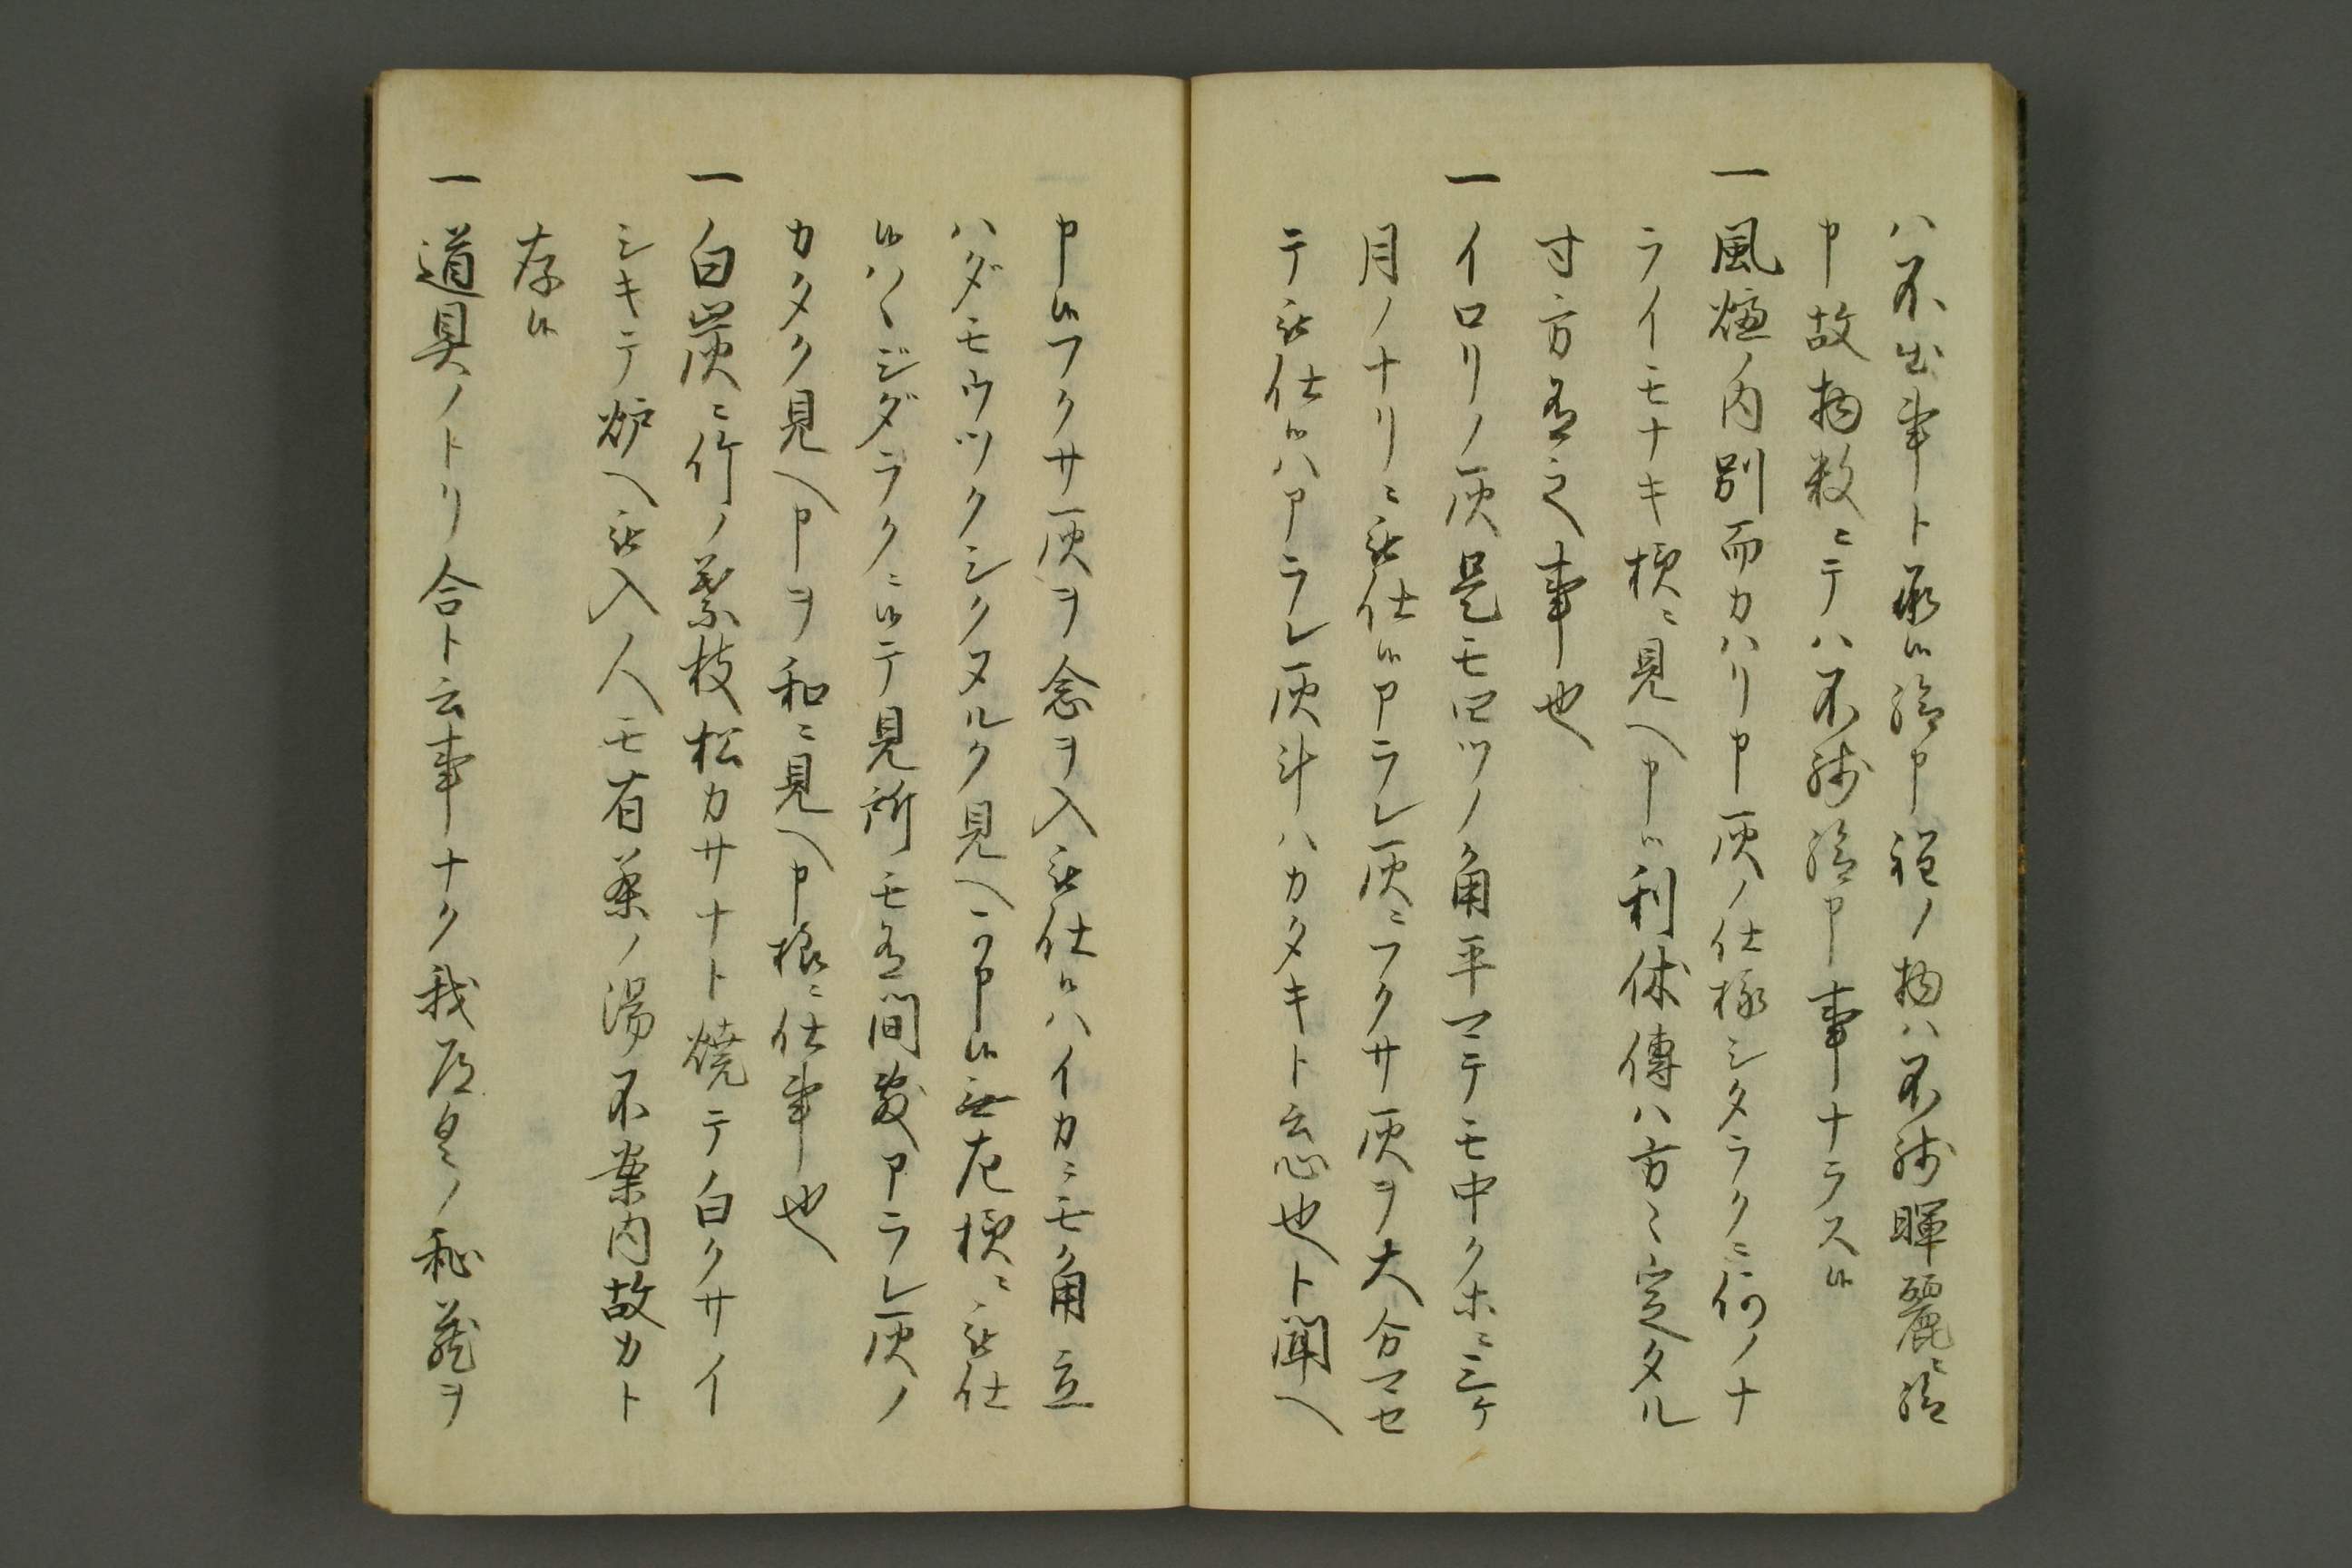 ハ不出事ト承候給申程ノ物ハ不残暉麗ニ給
申故物数ニテハ不残給申事ナラス候
一風爐ノ内別而カハリ申灰ノ仕様シタラクニ何ノナ
ライモナキ様ニ見ヘ申候利休傳ハ方々定タル
寸方有之事也
一イロリノ灰是モ四ツノ角平マテモ中クホニ三ケ
月ノナリニ被仕候アラレ灰ニフクサ灰ヲ大分マセ
テ被仕候ハアラレ灰斗ハカタキト云心也ト聞ヘ
申候フクサ灰ヲ念ヲ入被仕候ハイカニモ角立
ハダモウツクシクヌルク見ヘ可申候無左様ニ被仕
候ハヽジダラクニ候テ見所モ有間敷アラレ灰ノ
カタク見ヘ申ヲ和ニ見ヘ申様ニ仕事也
一白炭ニ竹ノ葉枝松カサナト焼テ白クサイ
シキテ炉ヘ被入人モ有茶ノ湯不案内故カト
存候
一道具ノトリ合ト云事ナク我度々ノ秘蔵ヲ